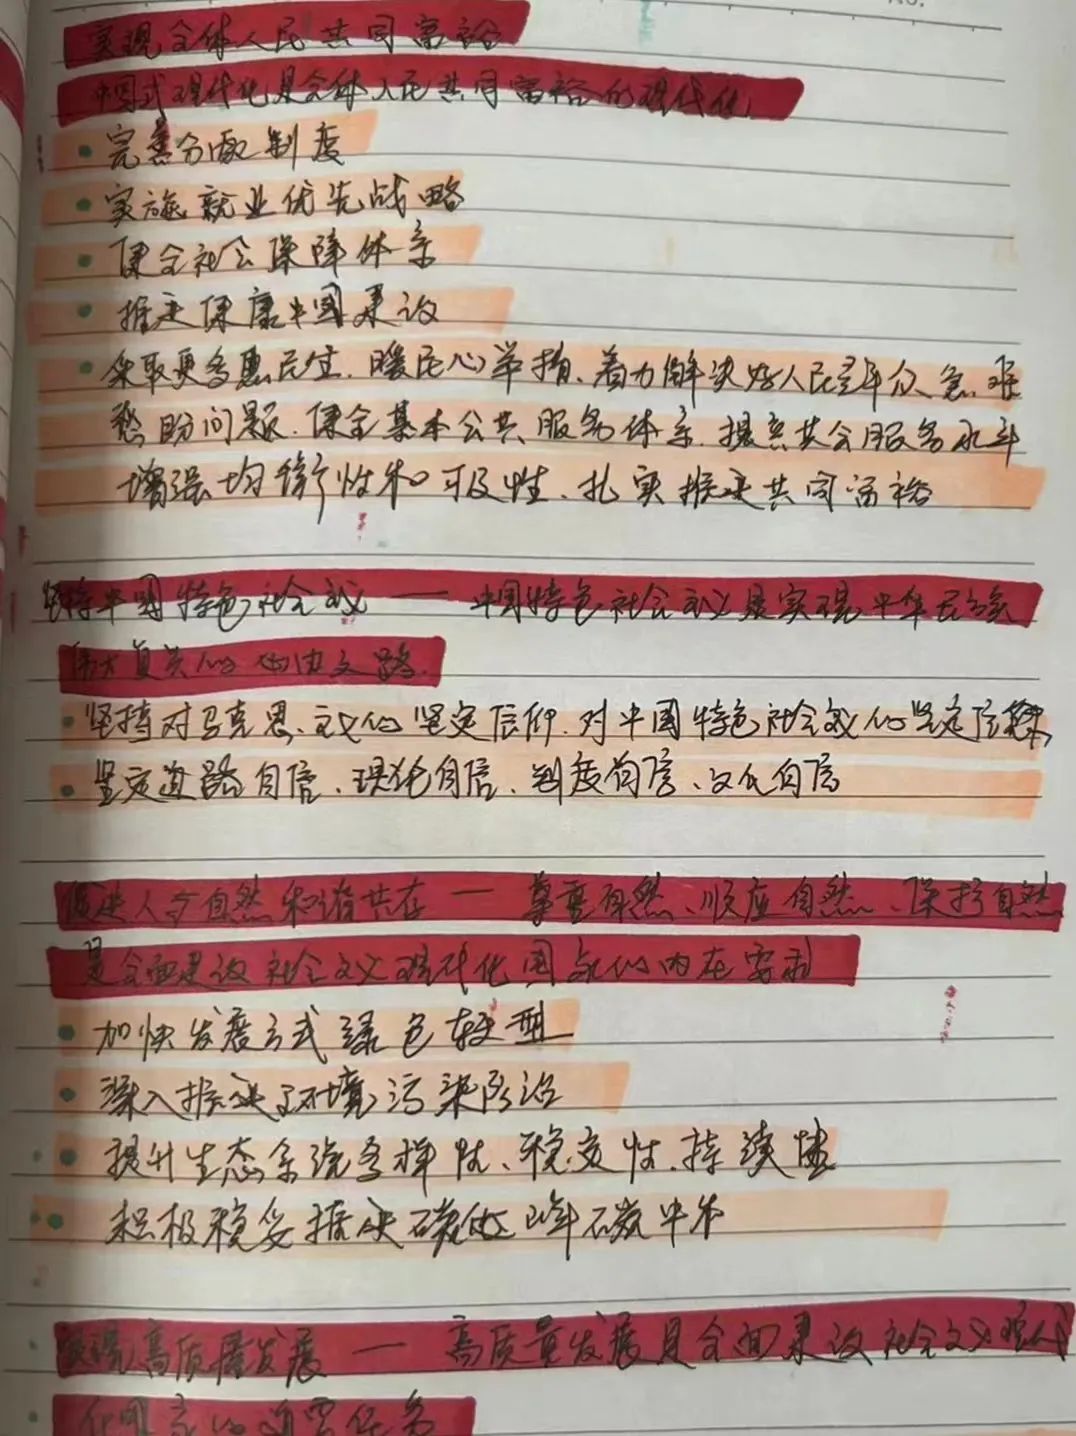 NO.
实现全体人民共同富裕
中国式现代化是全体人民共同富裕的现代化
完善分配制度
实施就业优先战略
健全社会保障体系
推进健康中国建设
采取更多惠民生、暖民心举措、着力解决好人民群众急难
愁盼问题、健全基本公共服务体系、提高共公服务水平
增强均衡性和可及性、扎实推进共同富裕
坚持中国特色社会主义 — 中国特色社会主义是实现中华民族
伟大复兴的必由之路
坚持对马克思主义的坚定信仰、对中国特色社会主义的坚定信
坚定道路自信、理论自信、制度自信、文化自信
促进人与自然和谐共存 — 尊重自然、顺应自然、保护自然
是全面建设社会主义现代化国家的内在要求
加快发展方式绿色转型
深入推进环境污染防治
提升生态系统多样性、稳定性、持续性
积极稳妥推进碳达峰碳中和
实现高质量发展 — 高质量发展是全面建设社会主义现代
化国家的首要任务